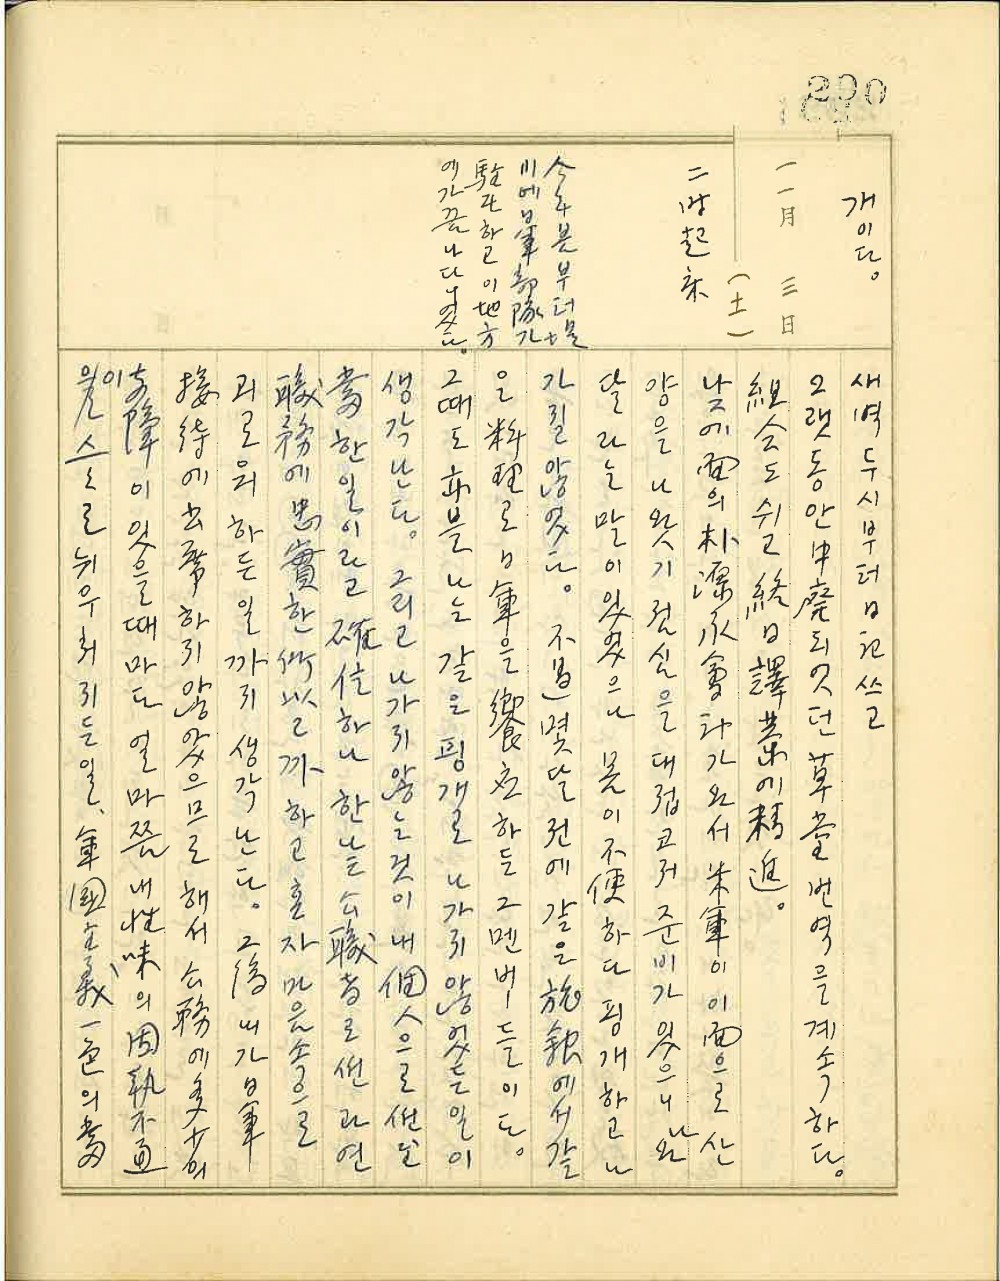 290
개이다。
一一月 三日
(土)
二時起床
今年봄부터벌
미에日軍部隊가
駐屯하고이地方
에가끔나다니엿다。
새벽두시부터日記쓰고
오랫동안中廢되엿던草堂번역을계속하다。
組合도쉬고終日譯業에精進。
낮에面의朴 永會 와서米軍이이面으로산
양을나왓기점심을대접코저준비가잇으니나와
달라는말이잇엇으나몸이不便하다핑개하고나
가질않엇다。不過몇달전에같은旅館에서같
은料理로日軍을饗應하든그멘버ー들이다。
그때도 나는같은핑개로나가지않엇든일이
생각난다。그리고나가지않는것이내個人으로선
當한일이라고確信하나한낱公職者로선과연
職務에忠實한 일까하고혼자마음속으로
괴로워하든일까지생각난다。그後내가日軍
接待에出席하지않앗으므로해서公務에多少의
支障이잇을때마다얼마쯤내性味의固執不通
이을스스로뉘우처지든일、軍國主義一色의當